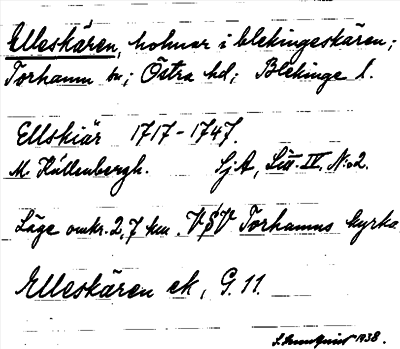 Elleskären, holmar i blekingeskären;
Torhamn sn; Östra hd; Blekinge l.
Ellskiär 1717-1747.
M Hällenbergh. SjA, Litt. IV. No 2.
Läge omkr. 2,7 km VSV Torhamns kyrka
Elleskären ek, G. 11.
1938.